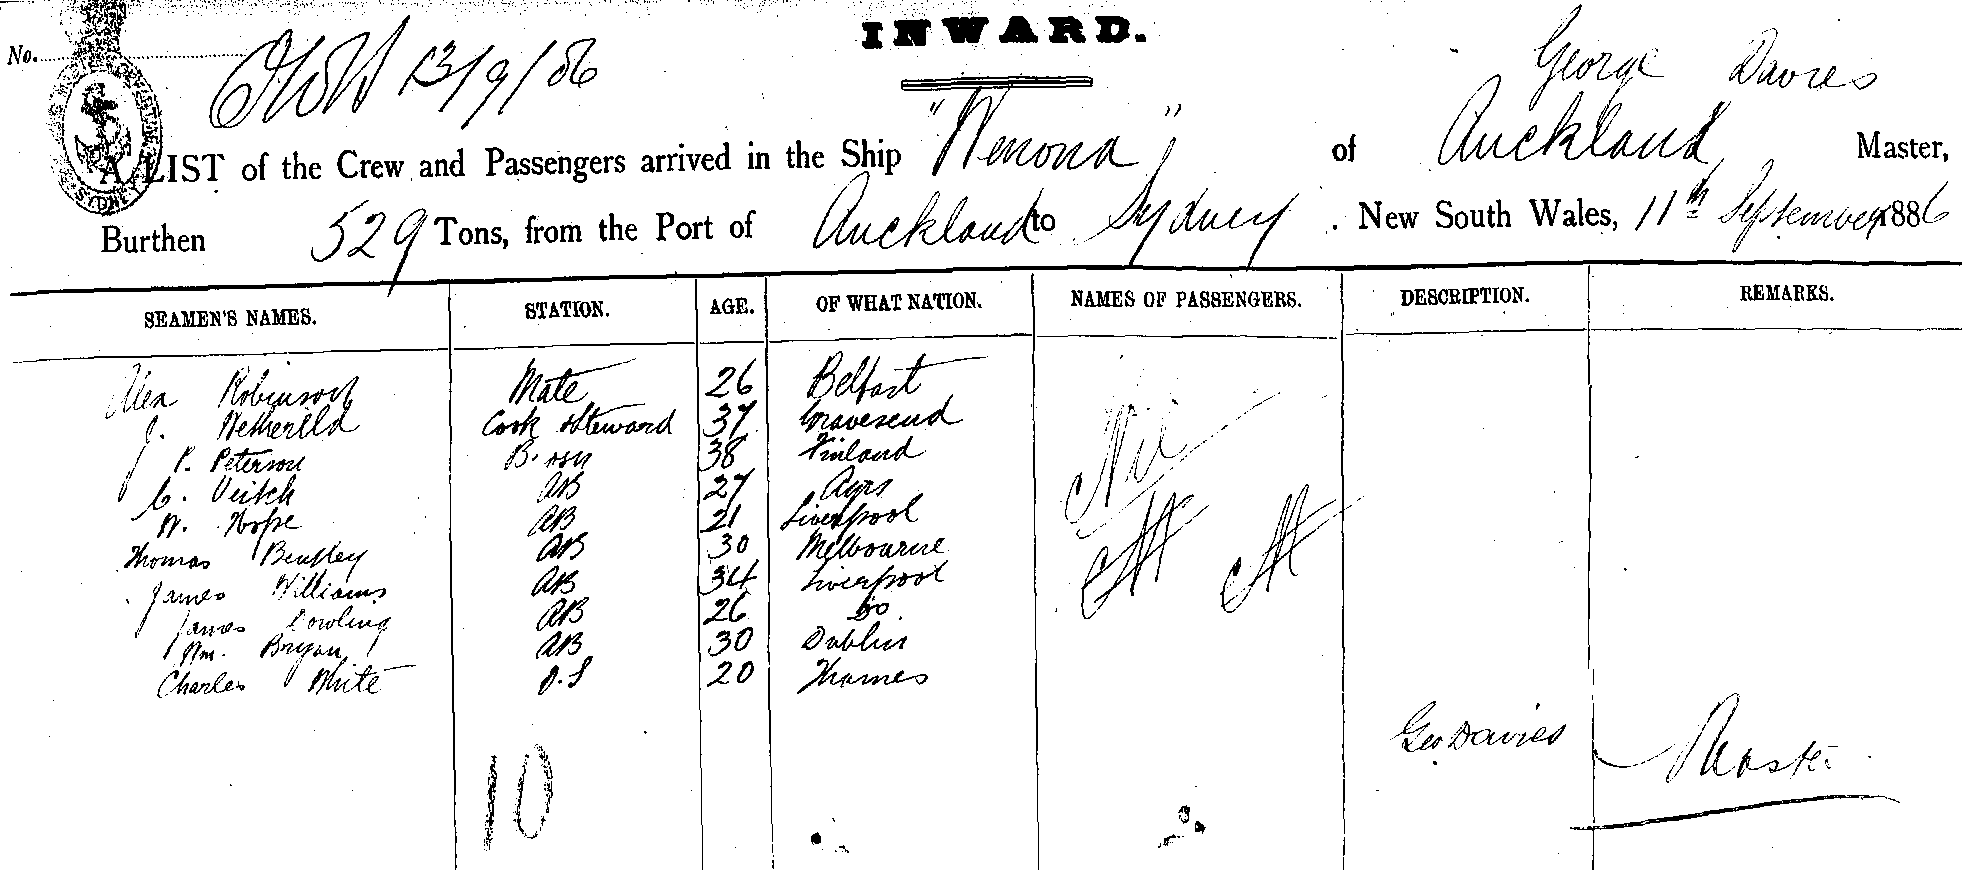 INWARD.
No. 13/9/86
George Davies
A LIST of the Crew and Passengers arrived in the Ship "Wenona" of Auckland Master,
Burthen 529 Tons, from the Port of Auckland to Sydney. New South Wales, 11th September 1886
SEAMEN'S NAMES. STATION. AGE. OF WHAT NATION. NAMES OF PASSENGERS. DESCRIPTION. REMARKS.
Alex Robinson Mate 26 Belfast
J. Netherlld Cook & Steward 37 Gravesend Nil
P. Peterson 38 Finland
C. Veitch AB 27 Ayrs
W. Hope AB 21 Liverpool
Thomas Bentley AB 30 Melbourne
James Williams AB 34 Liverpool
James Dowling AB 26 Do
Wm. Bryan AB 30 Dublin
Charles White O.S 20 Thames
Geo Davies Master
10